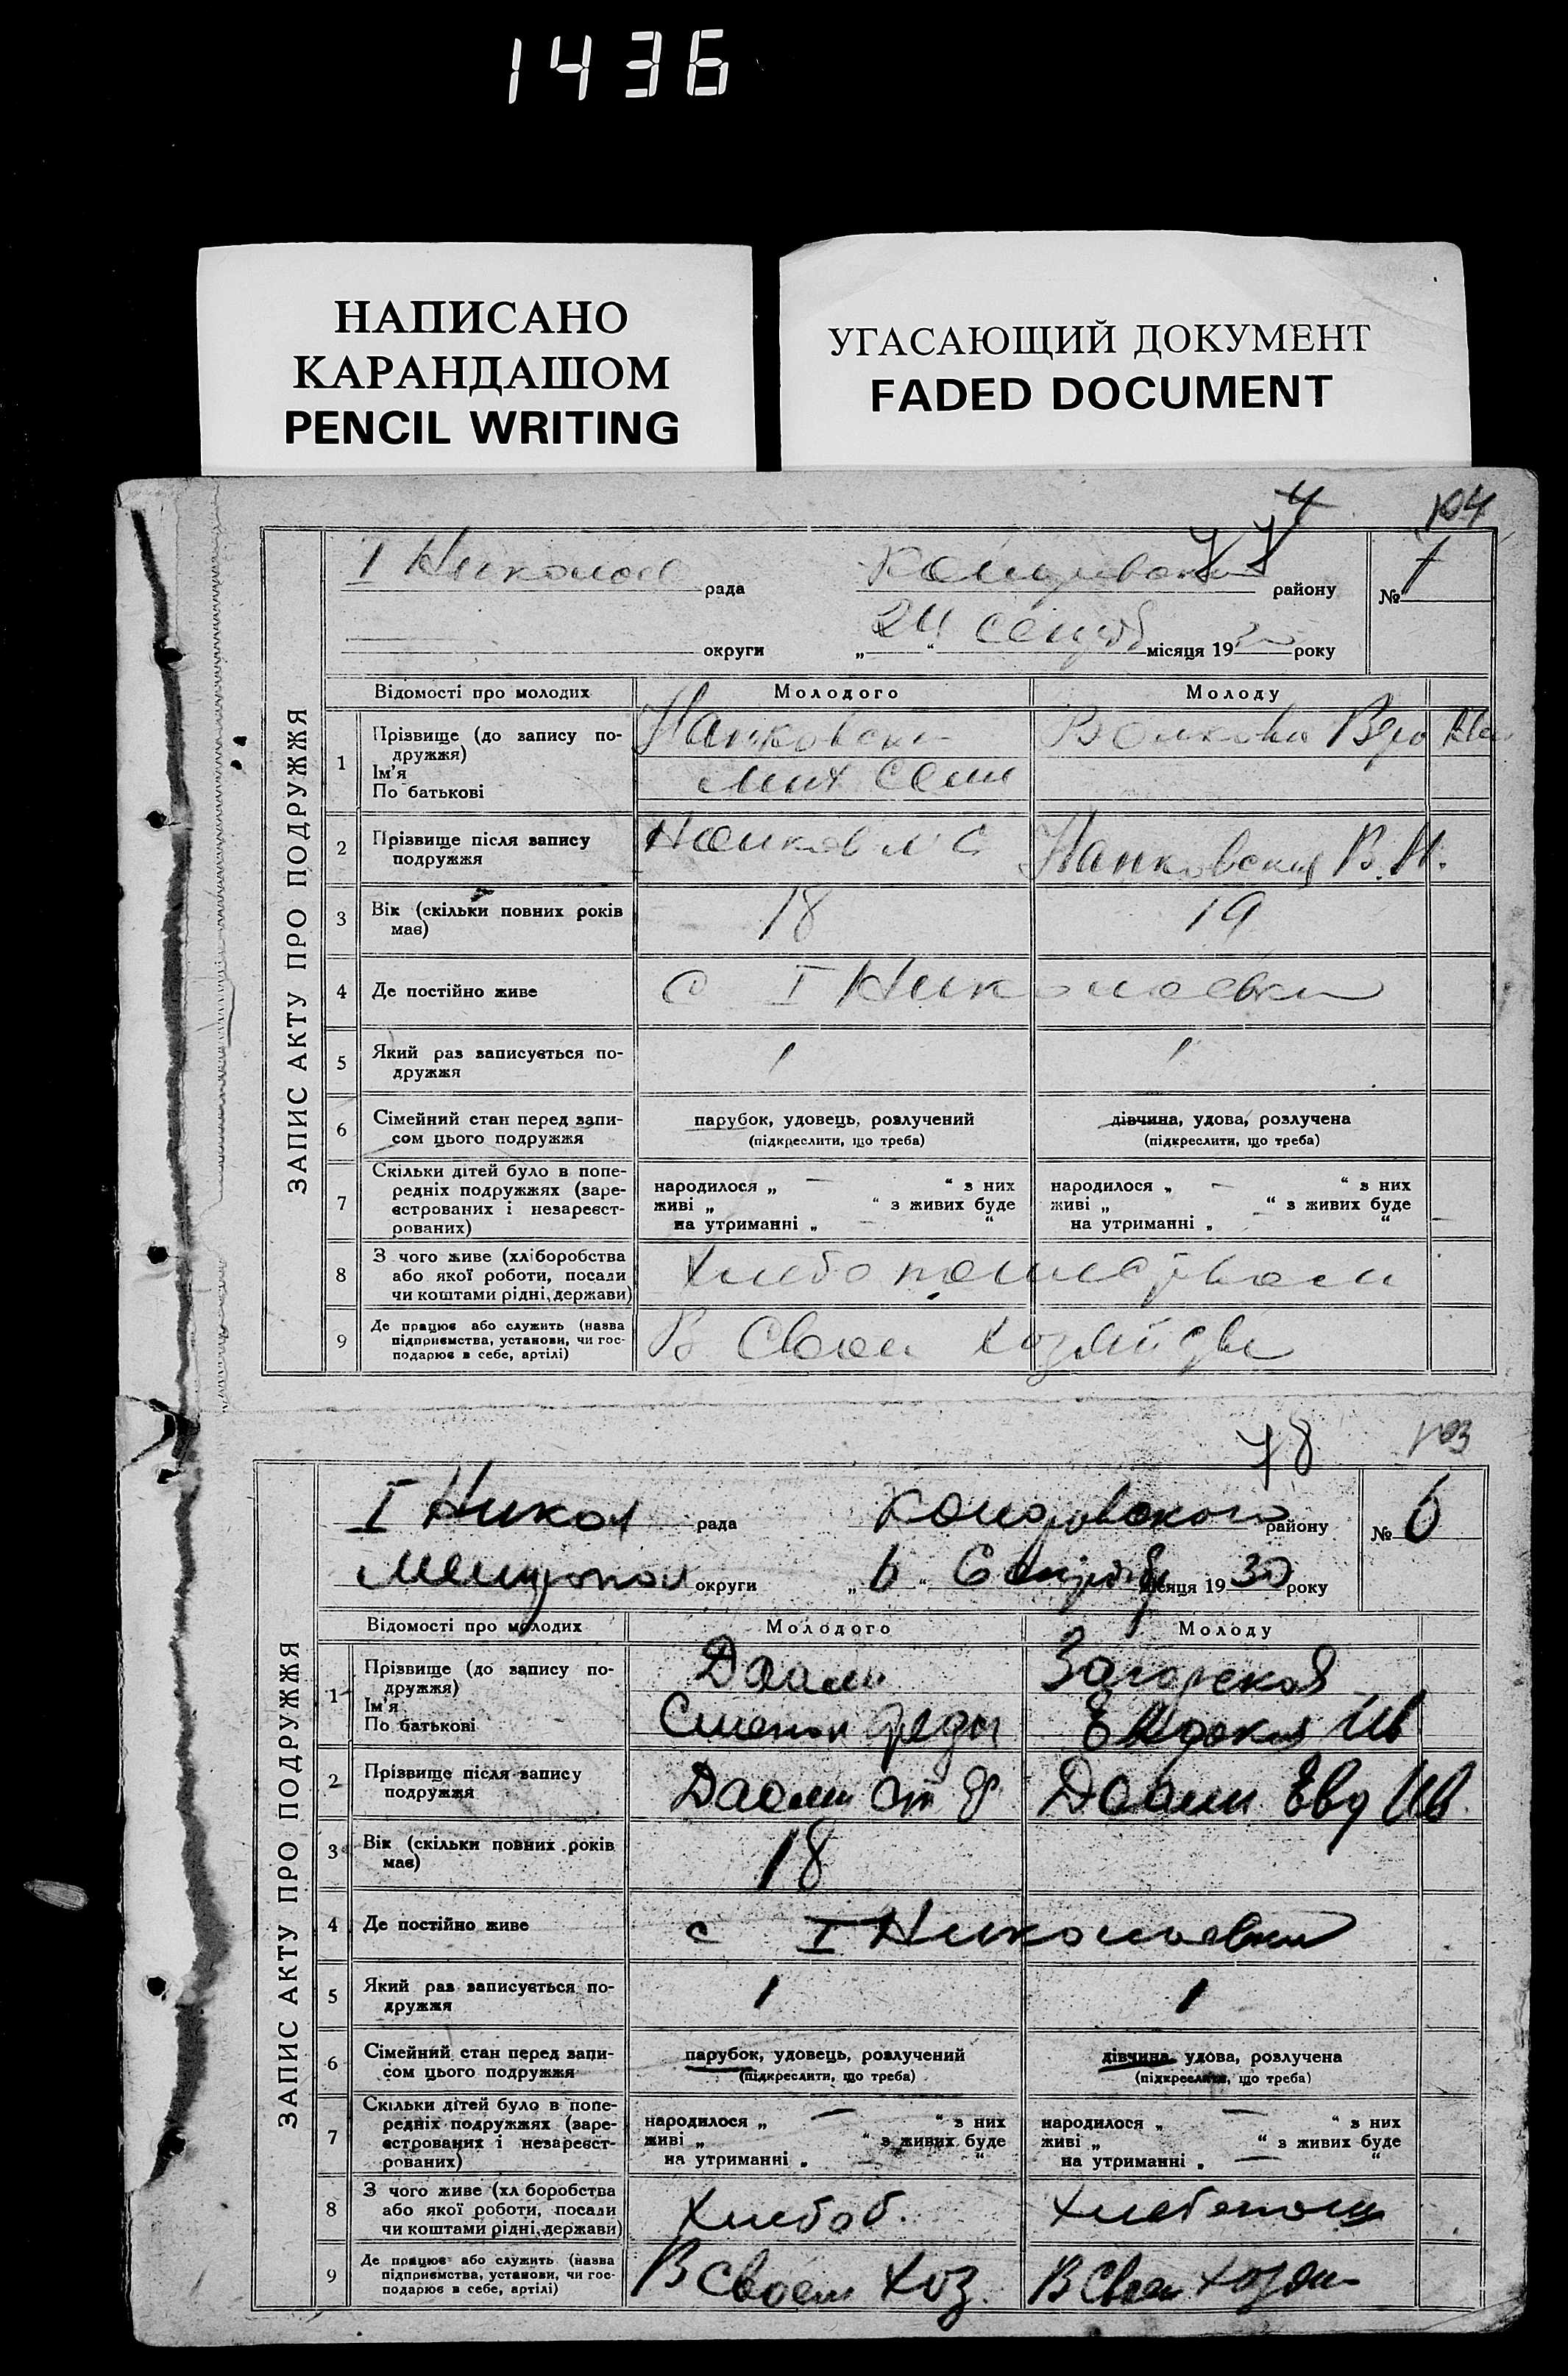 1436
НАПИСАНО
КАРАНДАШОМ
PENCIL WRITING
УГАСАЮЩИЙ ДОКУМЕНТ
FADED DOCUMENT
4 104
ЗАПИС АКТУ ПРО ПОДРУЖЖЯ
I Николаев рада району №
округи „ 24 “ місяця 19 року
Відомості про молодих Молодого Молоду
1 Прізвище (до запису подружжя)
Ім'я
По батькові
2 Прізвище після запису подружжя
В. И.
3 Вік (скільки повних років має) 18 19
4 Де постійно живе с I Николаевки
5 Який раз записується подружжя 1 1
6 Сімейний стан перед записом цього подружжя парубок, удовець, розлучений дівчина, удова, розлучена
(підкреслити, що треба) (підкреслити, що треба)
7 Скільки дітей було в попередніх подружжях (зареєстрованих і незареєстрованих)
народилося „ — “ з них народилося „ — “ з них
живі „ “ з живих буде живі „ “ з живих буде
на утриманні „ — “ на утриманні „ — “
8 З чого живе (хліборобства або якої роботи, посади чи коштами рідні, держави)
9 Де працює або служить (назва підприємства, установи, чи господарює в себе, артілі) В своем
78 103
ЗАПИС АКТУ ПРО ПОДРУЖЖЯ
I Никол рада району № 6
округи „ 6 “ місяця 1930 року
Відомості про молодих Молодого Молоду
1 Прізвище (до запису подружжя) Загорская
Ім'я
По батькові Евдокия Ив
2 Прізвище після запису подружжя Евд Ив
3 Вік (скільки повних років має) 18
4 Де постійно живе с I Николаевки
5 Який раз записується подружжя 1 1
6 Сімейний стан перед записом цього подружжя парубок, удовець, розлучений дівчина, удова, розлучена
(підкреслити, що треба) (підкреслити, що треба)
7 Скільки дітей було в попередніх подружжях (зареєстрованих і незареєстрованих)
народилося „ — “ з них народилося „ — “ з них
живі „ “ з живих буде живі „ “ з живих буде
на утриманні „ — “ на утриманні „ — “
8 З чого живе (хліборобства або якої роботи, посади чи коштами рідні, держави) Хлебоб.
9 Де працює або служить (назва підприємства, установи, чи господарює в себе, артілі) В своем хоз. В своем